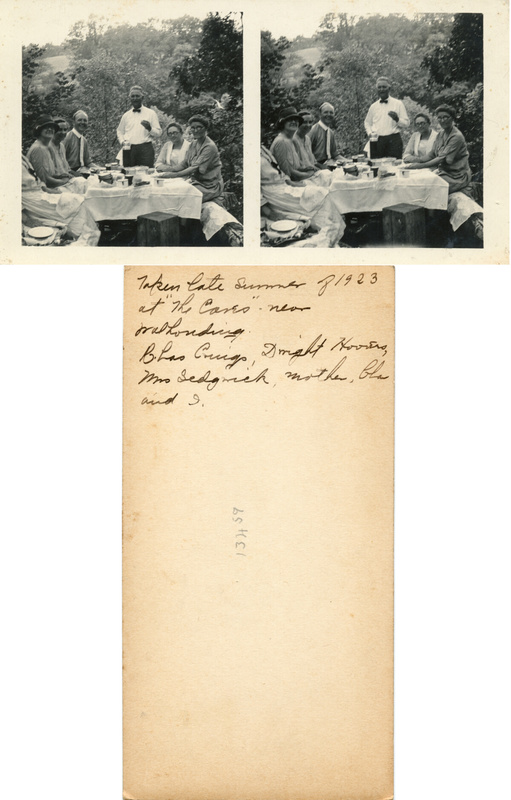 Taken late Summer of 1923
at "The Caves" near
Walhonding.
Craigs, Dwight Hoovers,
Mrs Sedgwick, mother,
and I.
13459